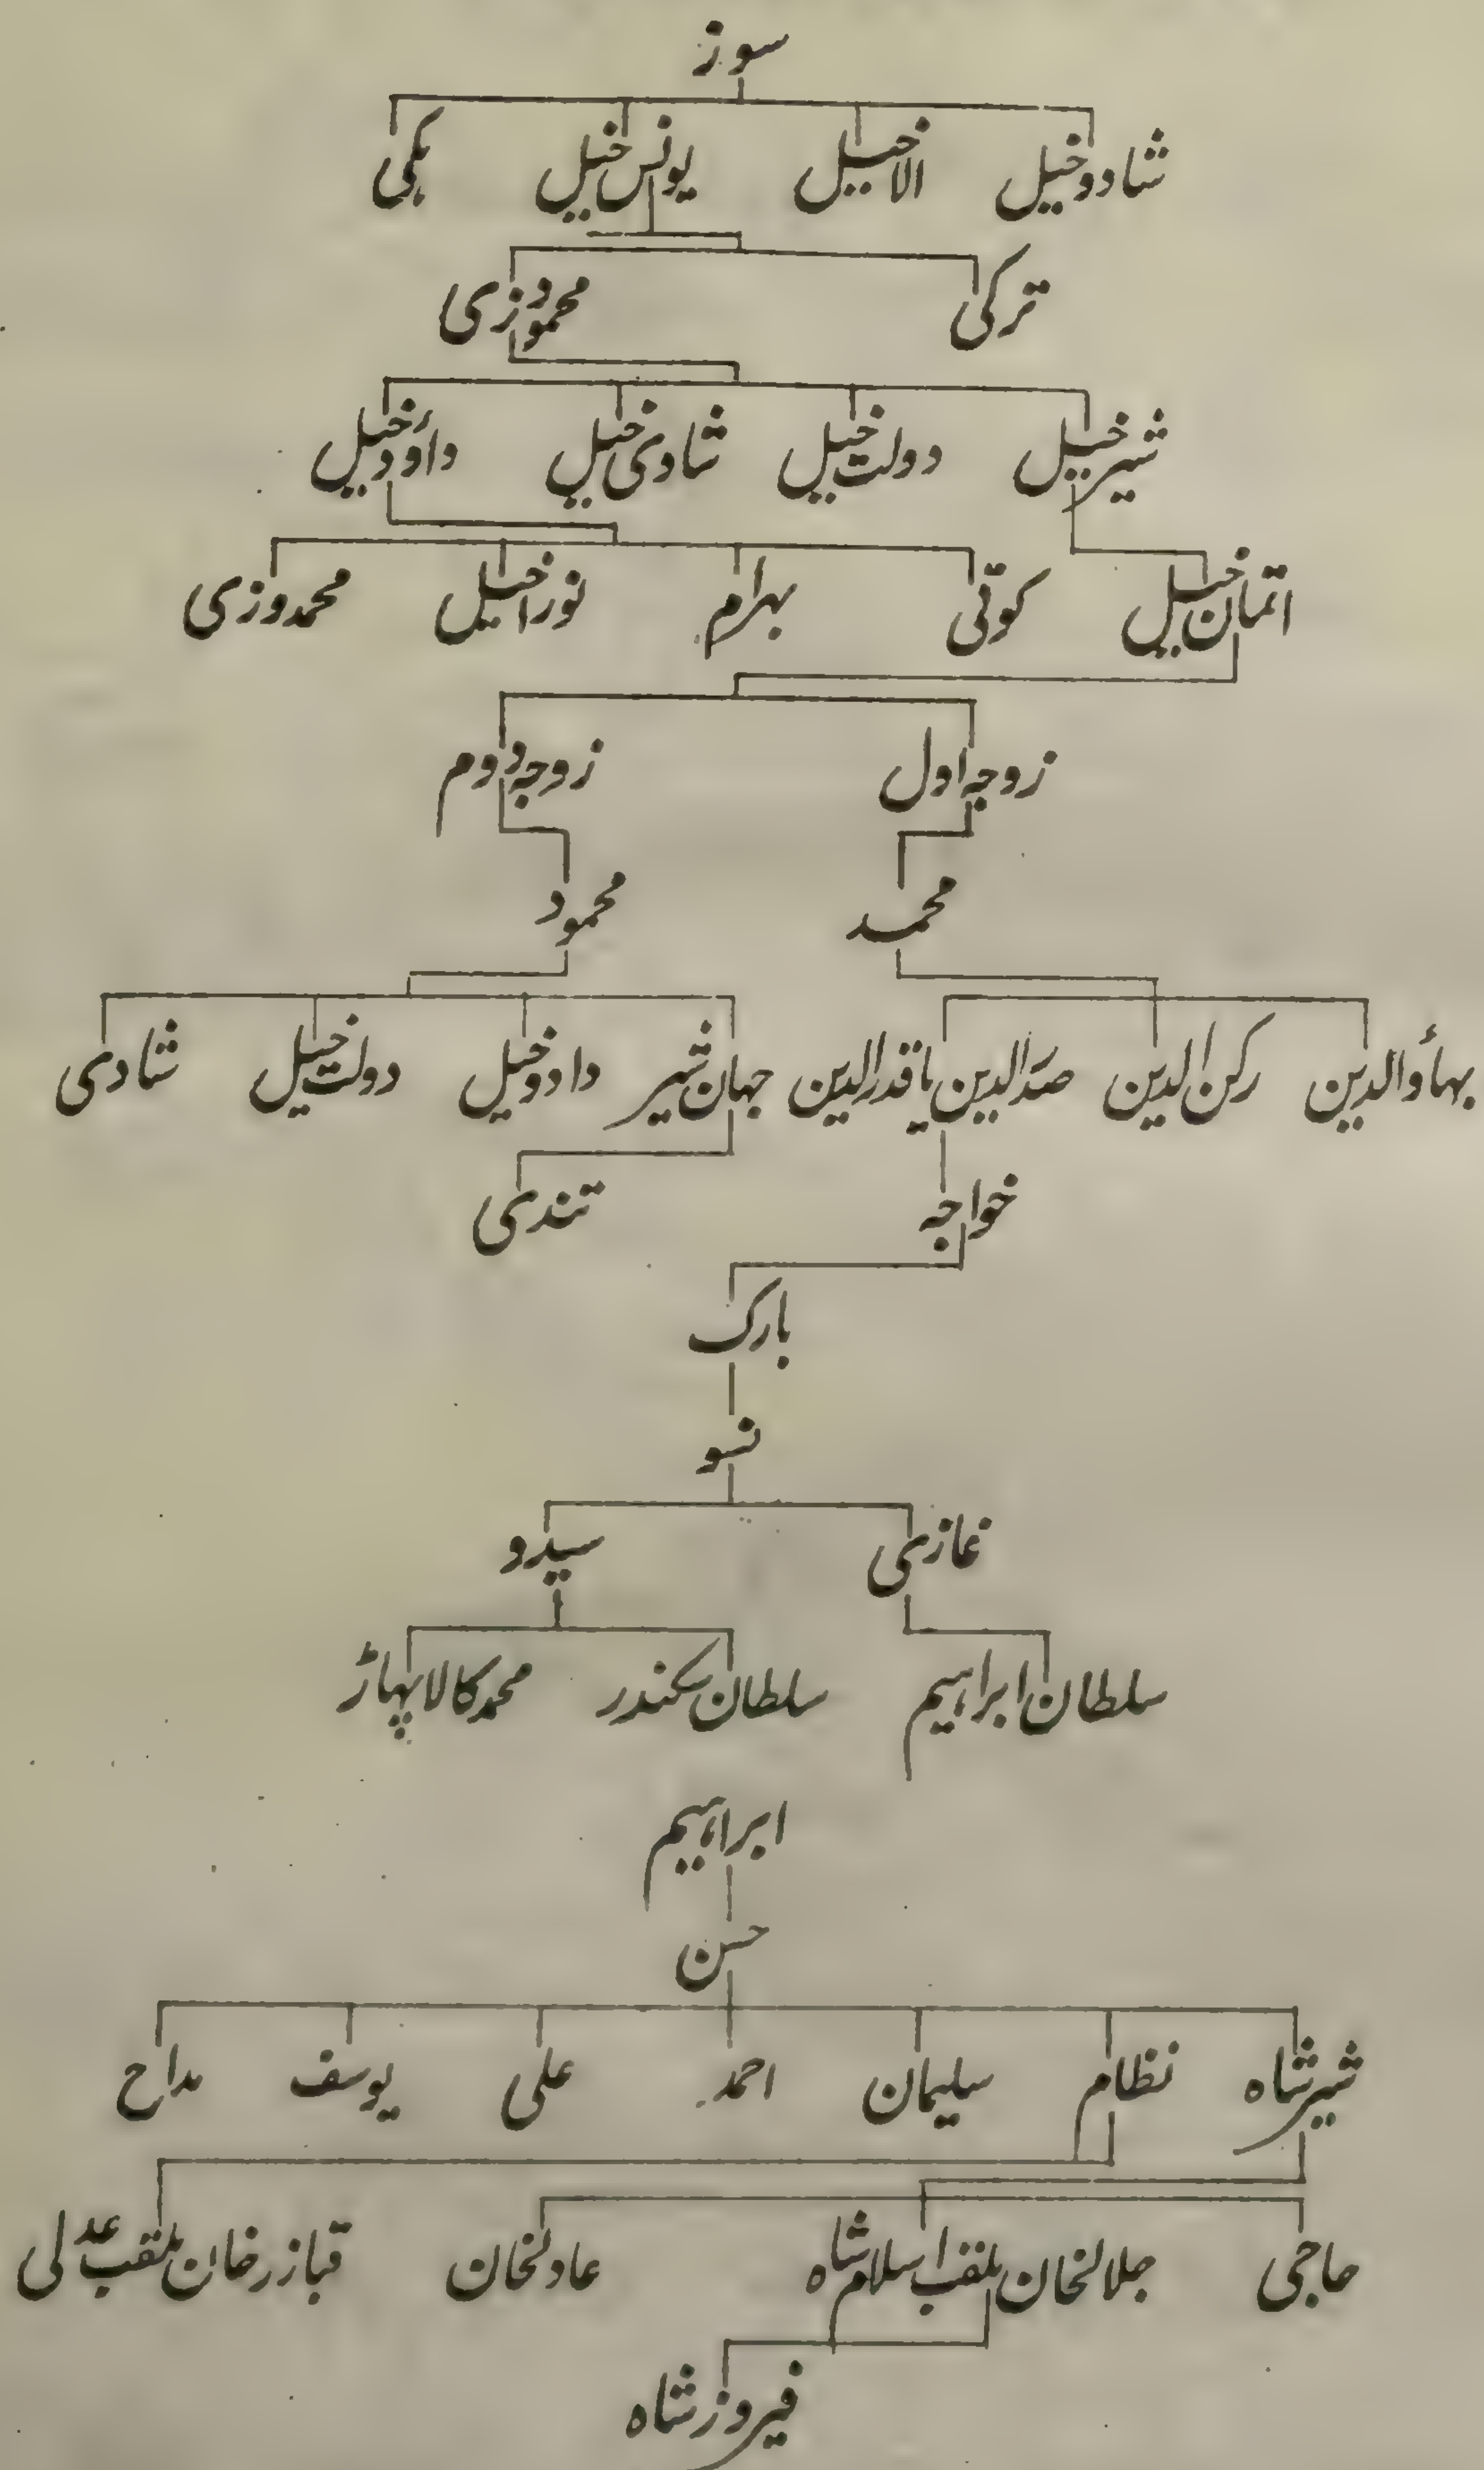 سوز
شادوخیل الاخیل یونس خیل مکی
ترکی محمودزی
شیر خیل دولت خیل شادی خیل داؤد خیل
اتمان خیل کوتی بہرام نورا خیل محمدوزی
زوجہ اول زوجہ دوم
محمد محمود
بہاؤالدین رکن الدین صدرالدین یا قدرالدین جہان شیر دادوخیل دولت خیل شادی
خواجہ تندی
بارک
نسو
غازی سیدو
سلطان ابراہیم سلطان سکندر محمد کالا پہاڑ
ابراہیم
حسن
شیر شاہ نظام سلیمان احمد علی یوسف مداح
حاجی جلالخان ملقب اسلام شاہ عادلخان مبازر خان ملقب عدلی
فیروز شاہ